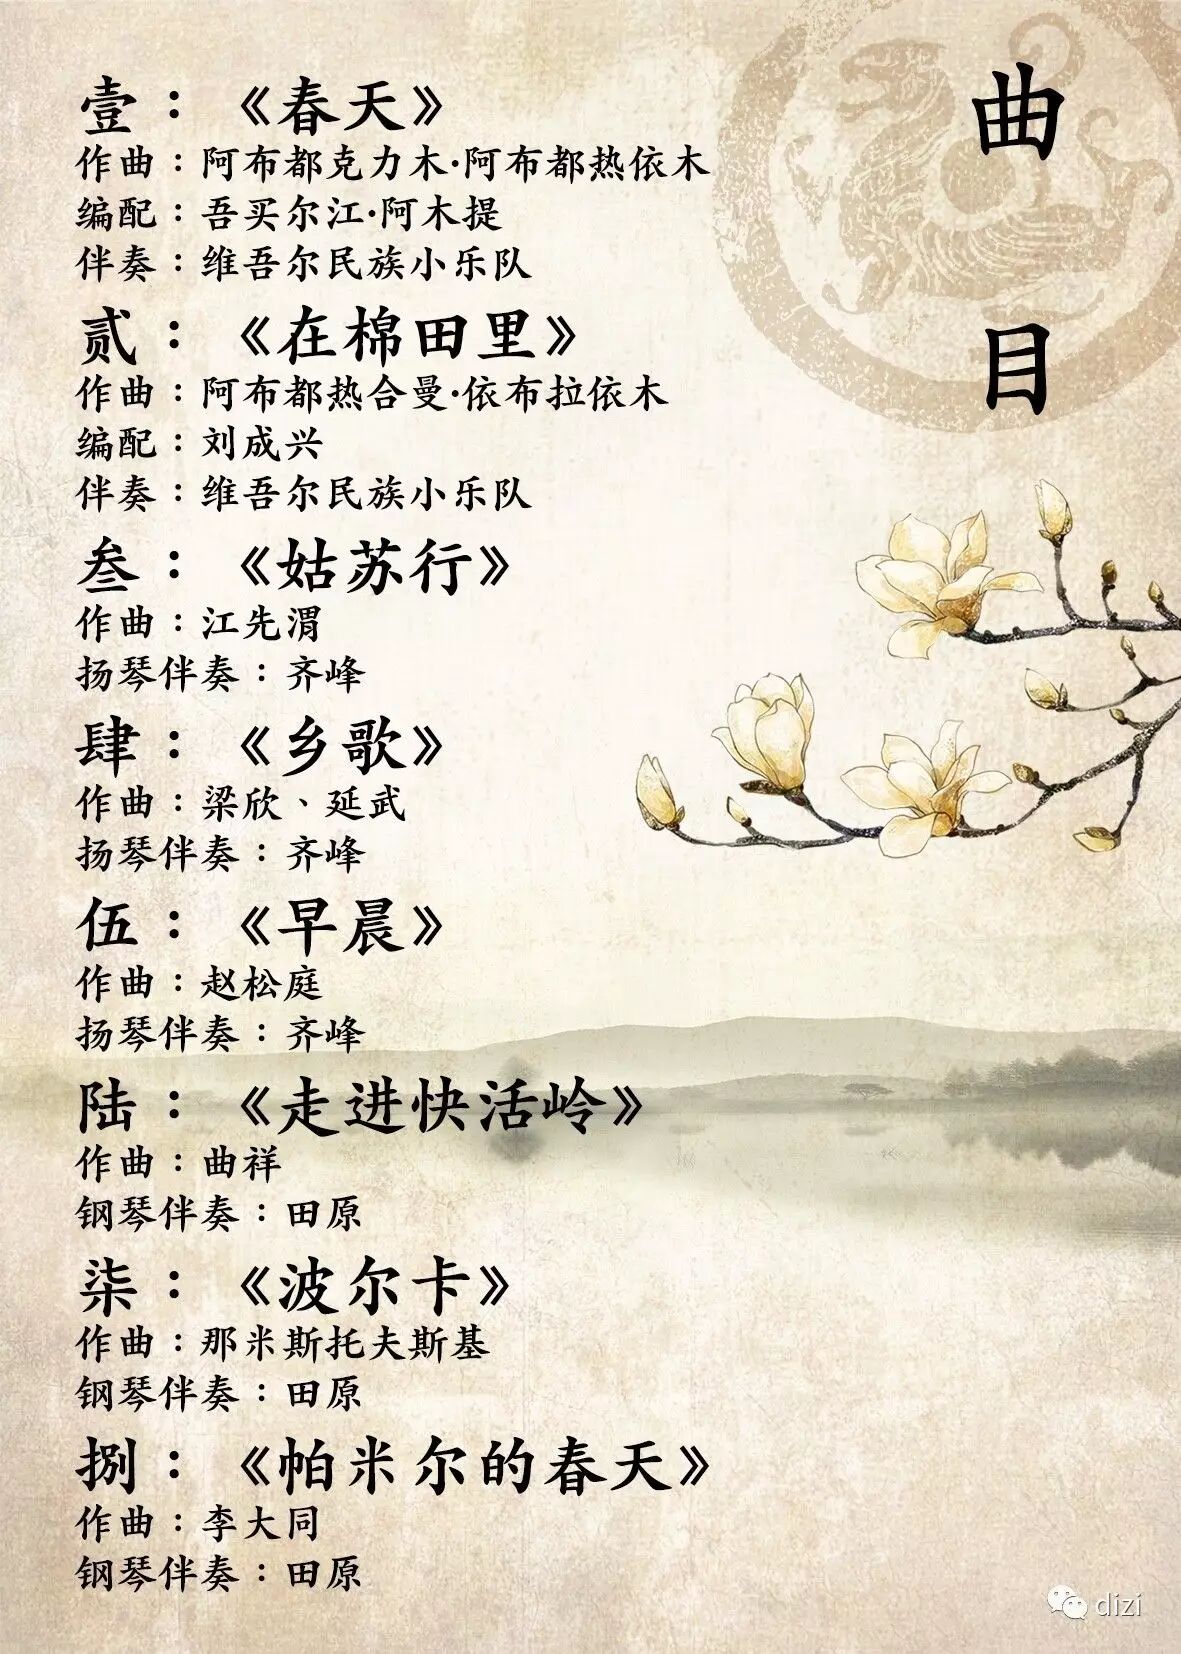 曲目
壹：《春天》
作曲：阿布都克力木·阿布都热依木
编配：吾买尔江·阿木提
伴奏：维吾尔民族小乐队
贰：《在棉田里》
作曲：阿布都热合曼·依布拉依木
编配：刘成兴
伴奏：维吾尔民族小乐队
叁：《姑苏行》
作曲：江先渭
扬琴伴奏：齐峰
肆：《乡歌》
作曲：梁欣、延武
扬琴伴奏：齐峰
伍：《早晨》
作曲：赵松庭
扬琴伴奏：齐峰
陆：《走进快活岭》
作曲：曲祥
钢琴伴奏：田原
柒：《波尔卡》
作曲：那米斯托夫斯基
钢琴伴奏：田原
捌：《帕米尔的春天》
作曲：李大同
钢琴伴奏：田原
dizi